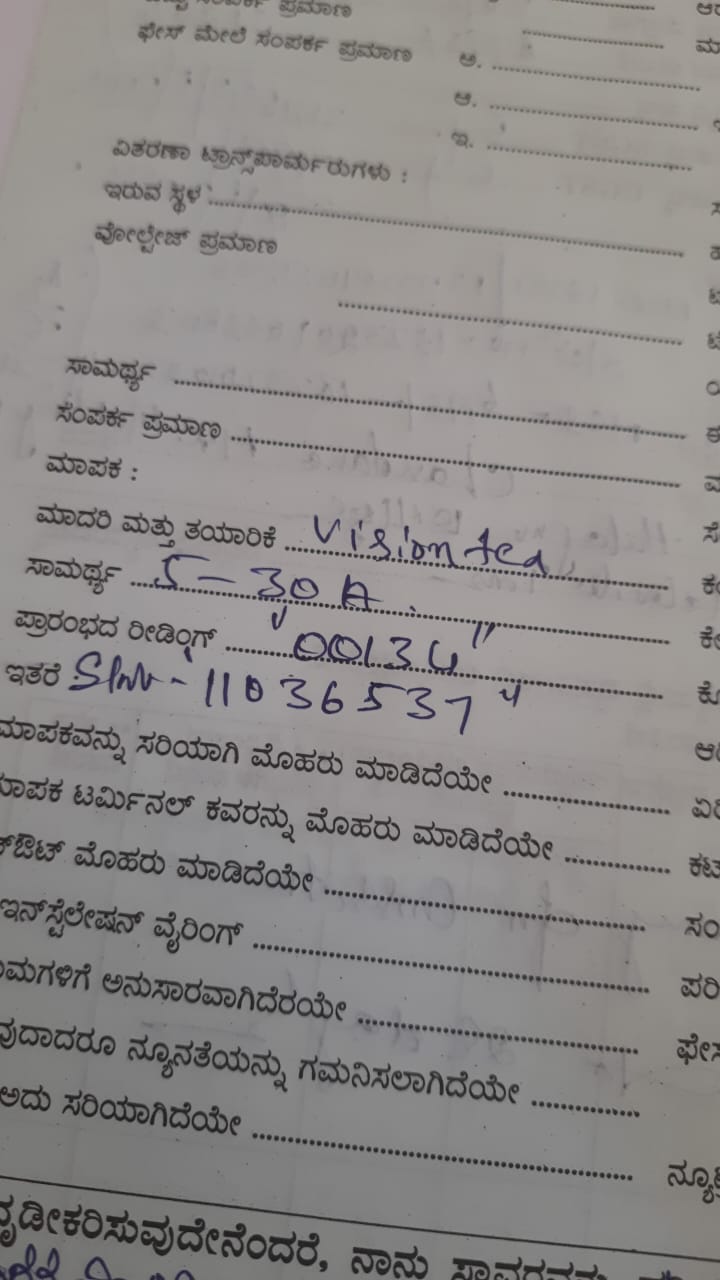 ಸಂಪರ್ಕ ಪ್ರಮಾಣ
ಫೇಸ್ ಮೇಲೆ ಸಂಪರ್ಕ ಪ್ರಮಾಣ ಅ. ....................
ಆ. ....................
ಇ. ....................
ವಿತರಣಾ ಟ್ರಾನ್ಸ್‌ಪಾರ್ಮರುಗಳು :
ಇರುವ ಸ್ಥಳ : ....................
ವೋಲ್ಟೇಜ್ ಪ್ರಮಾಣ
....................
:
ಸಾಮರ್ಥ್ಯ ....................
ಸಂಪರ್ಕ ಪ್ರಮಾಣ ....................
ಮಾಪಕ :
ಮಾದರಿ ಮತ್ತು ತಯಾರಿಕೆ .... Visiontea
ಸಾಮರ್ಥ್ಯ .... 5-30A.
ಪ್ರಾರಂಭದ ರೀಡಿಂಗ್ .... "00134"
ಇತರೆ : Slno - "11036537"
ಮಾಪಕವನ್ನು ಸರಿಯಾಗಿ ಮೊಹರು ಮಾಡಿದೆಯೇ ....................
ಮಾಪಕ ಟರ್ಮಿನಲ್ ಕವರನ್ನು ಮೊಹರು ಮಾಡಿದೆಯೇ ....................
ಮೊಹರು ಮಾಡಿದೆಯೇ ....................
ಇನ್‌ಸ್ಟೆಲೇಷನ್ ವೈರಿಂಗ್ ....................
ಅನುಸಾರವಾಗಿದೆರಯೇ ....................
ನ್ಯೂನತೆಯನ್ನು ಗಮನಿಸಲಾಗಿದೆಯೇ ....................
ಅದು ಸರಿಯಾಗಿದೆಯೇ ....................
ದೃಡೀಕರಿಸುವುದೇನೆಂದರೆ, ನಾನು